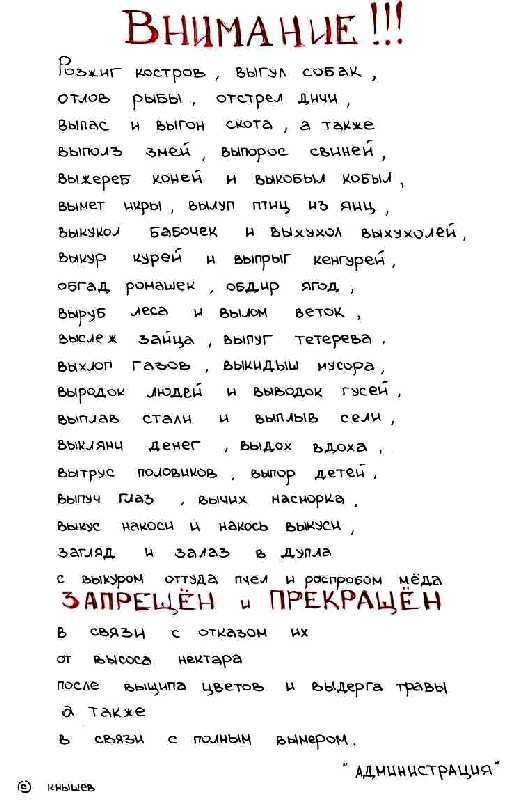 ВНИМАНИЕ!!!
Розжиг костров, выгул собак,
отлов рыбы, отстрел дичи,
выпас и выгон скота, а также
выполз змей, выпорос свиней,
выжереб коней и выкобыл кобыл,
вымет икры, вылуп птиц из яиц,
выкукол бабочек и выхухол выхухолей,
выкур курей и выпрыг кенгурей,
обгад ромашек, обдир ягод,
выруб леса и вылом веток,
выслеж зайца, выпуг тетерева.
выхлоп газов, выкидыш мусора,
выродок людей и выводок гусей,
выплав стали и выплыв сели,
выкляни денег, выдох вдоха,
вытрус половиков, выпор детей,
выпуч глаз, вычих насморка,
выкус накоси и накось выкуси,
загляд и залаз в дупла
с выкуром оттуда пчел и распробом мёда
ЗАПРЕЩЁН и ПРЕКРАЩЁН
в связи с отказом их
от высоса нектара
после выщипа цветов и выдерга травы
а также
в связи с полным вымером.
"АДМИНИСТРАЦИЯ"
© КНЫШЕВ